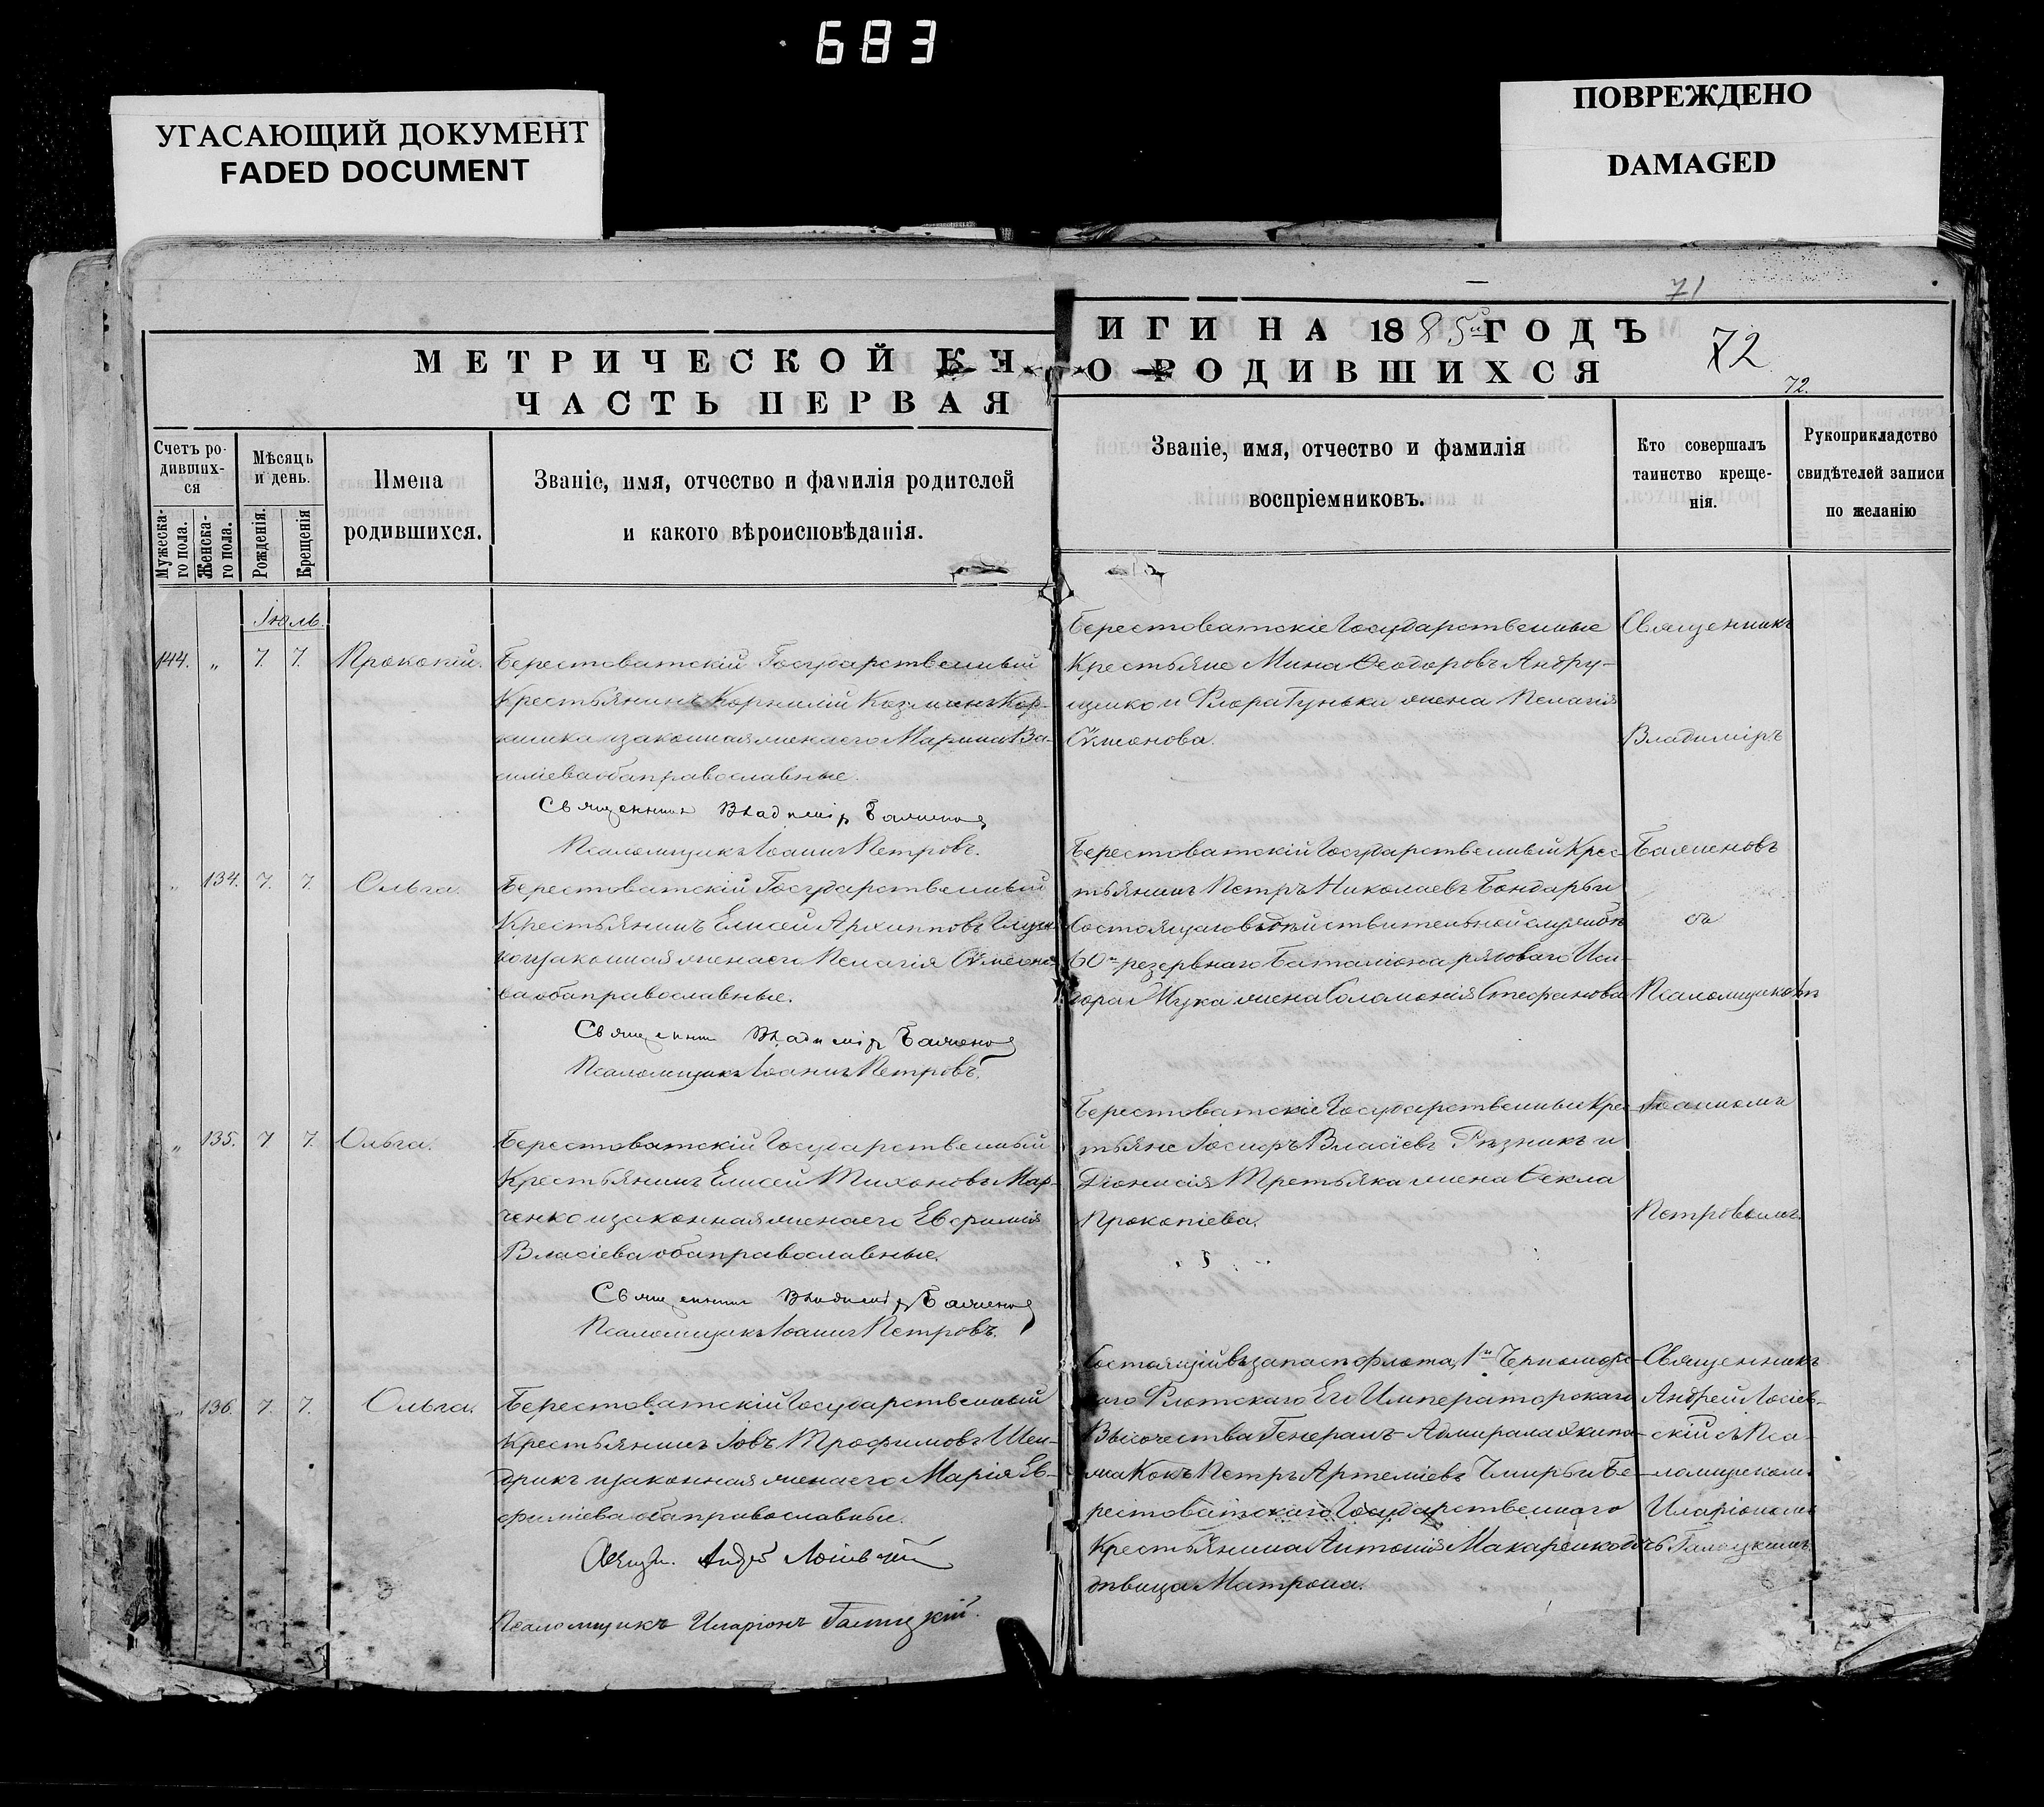 683
УГАСАЮЩИЙ ДОКУМЕНТ
FADED DOCUMENT
ПОВРЕЖДЕНО
DAMAGED
71
МЕТРИЧЕСКОЙ КН
ИГИ НА 1885й ГОДЪ
72
ЧАСТЬ ПЕРВАЯ
О РОДИВШИХСЯ
72.
Счетъ ро-
дивших-
ся
Мужеска-
го пола.
Женска-
го пола.
Мѣсяцъ
и день.
Рожденія.
Крещенія
Имена
родившихся.
Званіе, имя, отчество и фамилія родителей
и какого вѣроисповѣданія.
Званіе, имя, отчество и фамилія
воспріемниковъ.
Кто совершалъ
таинство креще-
нія.
Рукоприкладство
свидѣтелей записи
по желанію
Іюль.
144. „ 7. 7. Прокопій.
Берестоватскій Государственный
Крестьянинъ Корнилій Козминъ Кор-
и законная жена его Марина Ва-
силіева оба православные.
Священникъ Владиміръ Баженовъ
Псаломщикъ Іоаннъ Петровъ.
Берестоватскіе Государственные
Крестьяне Мина Ѳеодоровъ Андру-
щенко и Флора Гуньки жена Пелагія
Сѵмеонова.
Священникъ
Владиміръ
Баженовъ
съ
Псаломщикомъ
Іоанномъ
Петровымъ.
„ 134. 7. 7. Ольга.
Берестоватскій Государственный
Крестьянинъ Елисей Архипповъ
законная жена его Пелагія Сѵмеоно-
ва оба православные.
Священникъ Владиміръ Баженовъ
Псаломщикъ Іоаннъ Петровъ.
Берестоватскій Государственный Крес-
тьянинъ Петръ Николаевъ Бондарь и
Состоящаго въ дѣйствительной службѣ
60го резервнаго Баталіона рядоваго Иси-
дора Жука жена Соломонія Стефанова
„ 135. 7 7. Ольга.
Берестоватскій Государственный
Крестьянинъ Елисей Тихоновъ Мар-
ченко и законная жена его Евфимія
Власіева оба православные.
Священникъ Владиміръ Баженовъ
Псаломщикъ Іоаннъ Петровъ.
Берестоватскіе Государственные Крес-
тьяне Іосифъ Власіевъ Рѣзникъ и
Діонисія Третьяка жена Ѳекла
Прокопіева.
„ 136. 7. 7. Ольга.
Берестоватскій Государственный
Крестьянинъ Іовъ Трофимовъ Шен-
дрикъ и законная жена его Марія Ев-
фиміева оба православные.
Священ. Андрей Лосіевскій
Псаломщикъ Иларіонъ Галицкій.
Состоящій въ запасѣ флота, 1го Черноморс-
каго Флотскаго Его Императорскаго
Высочества Генералъ-Адмирала экипа-
жа Кокъ Петръ Артеміевъ Чмирь и Бе-
рестоватскаго Государственнаго
Крестьянина Антонія Макаренко дочь
дѣвица Матрона.
Священникъ
Андрей Лосіев-
скій съ Пса-
ломщикомъ
Иларіономъ
Галицкимъ